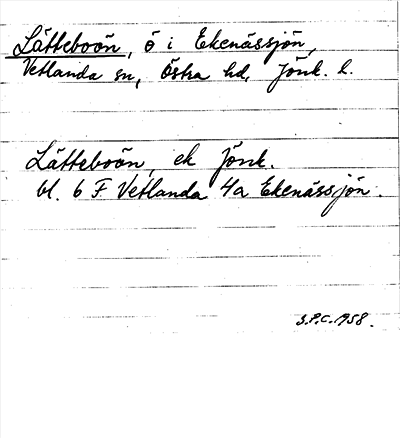 Lätteboön, ö i Ekenässjön,
Vetlanda sn, Östra hd, Jönk. l.
Lätteboön, ek Jönk.
bl. 6 F Vetlanda 4a Ekenässjön.
S.P.C. 1958.